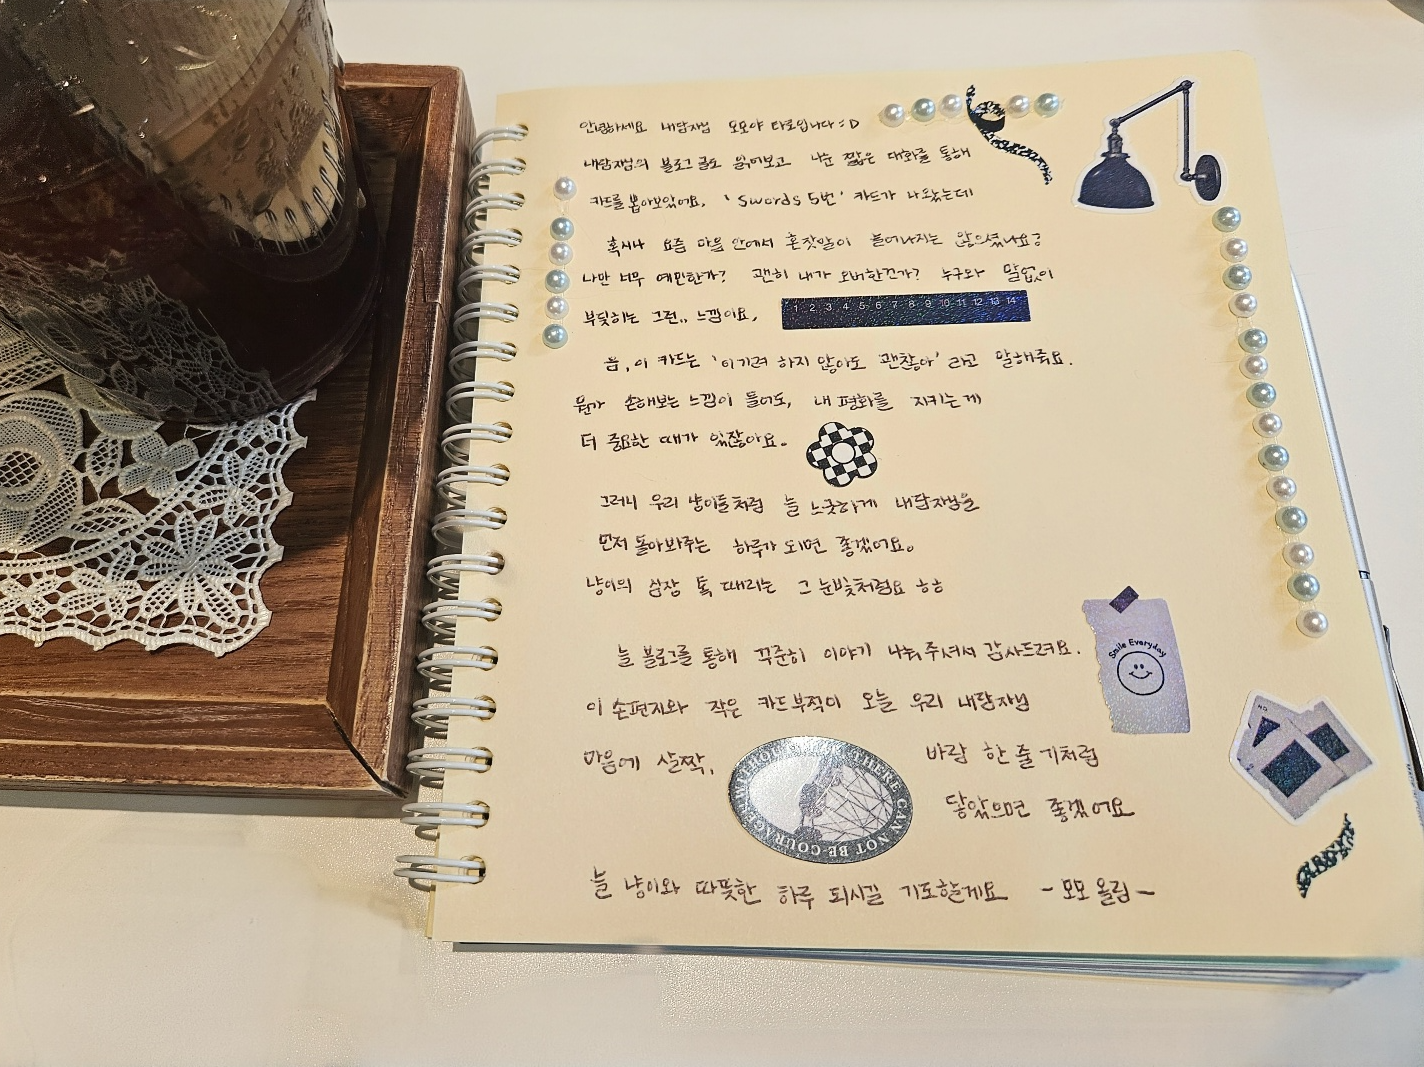 안녕하세요 내담자님 모모야 타로입니다 :D
내담자님의 블로그 글도 읽어보고 나눈 짧은 대화를 통해
카드를 뽑아보았어요, 'Swords 5번' 카드가 나왔는데
혹시나 요즘 마음 안에서 혼잣말이 늘어나지는 않으셨나요?
나만 너무 예민한가? 괜히 내가 오버한건가? 누구와 말없이
부딪히는 그런.. 느낌이요,
1 2 3 4 5 6 7 8 9 10 11 12 13 14
음, 이 카드는 '이기려 하지 않아도 괜찮아' 라고 말해줘요.
뭔가 손해보는 느낌이 들어도, 내 평화를 지키는게
더 중요한 때가 있잖아요.
그러니 우리 냥이들처럼 늘 느긋하게 내담자님을
먼저 돌아봐주는 하루가 되면 좋겠어요.
냥이의 심장 톡 때리는 그 눈빛처럼요 ㅎㅎ
늘 블로그를 통해 꾸준히 이야기 나눠주셔서 감사드려요.
Smile Everyday
이 손편지와 작은 카드부적이 오늘 우리 내담자님
마음에 살짝, 바람 한 줄기처럼
THERE CAN NOT BE COURAGE
닿았으면 좋겠어요
늘 냥이와 따뜻한 하루 되시길 기도할게요 - 모모 올림 -